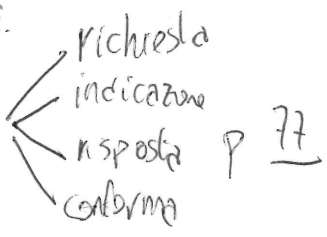 richiesta
indicazione
risposta p 77
conferma